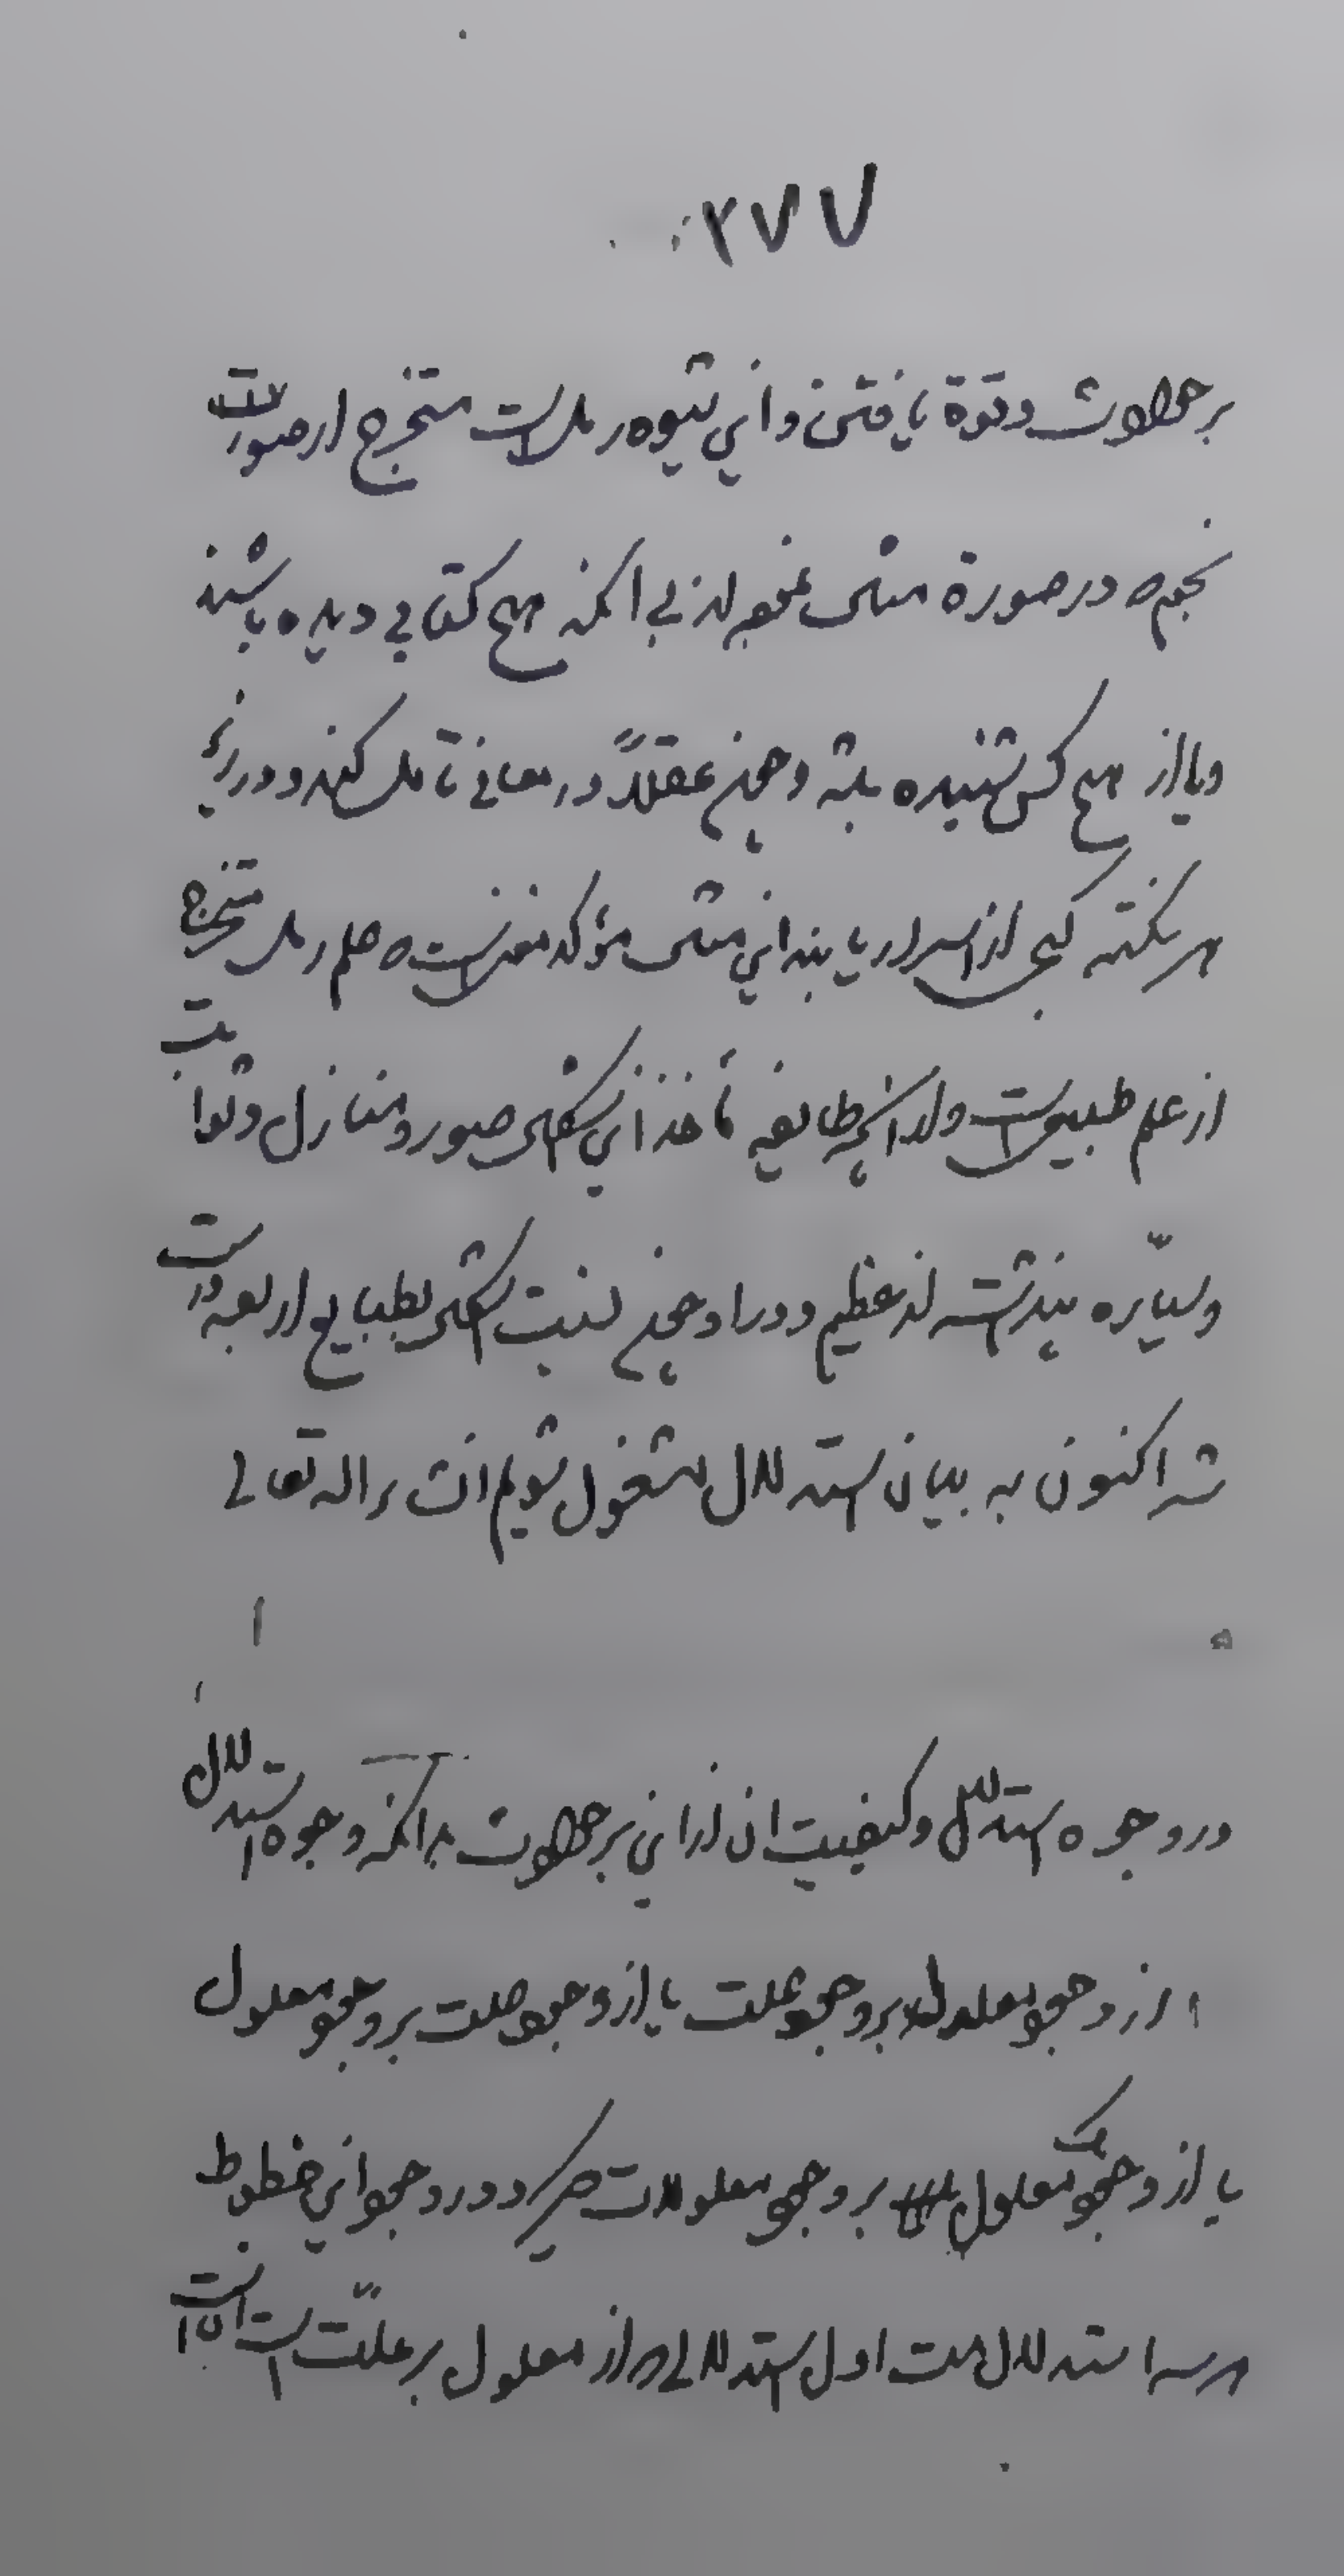 ۲۷۷
بر حوادث وقوة یافتن و این شیوه رمل است متخرج از صورت
نجوم در صورة مثلی بی آنکه هیچ کتابی دیده باشند
و یا از هیچ کس شنیده باشد و همین عقلاً در معانی تأمل کند و در زیر
هر نکته گنجی از اسرار یابند این مثلی مؤکد علم رمل متخرج
از علم طبیعی است و از آنچه طایفه مأخذ این شکلی صور و منازل و ثوابت
و سیّاره پنداشته اند عظیم دور او همین نسبت شکلی بطبایع اربعه درست
شد اکنون به بیان استدلال مشغول شویم انشاء الله تعالی
در وجوه استدلال و کیفیت آن از این بر حوادث بدانکه وجوه استدلال
از وجود معلول بر وجود علت یا از وجود علت بر وجود معلول
یا از وجود یک معلول بر وجود معلولات میگردد و در وجود این خطوط
هر سه استدلال هست اول استدلالی که از معلول بر علّت است آنست